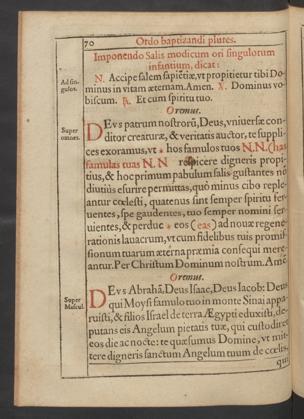 70
Ordo baptizandi plures.
Imponendo Salis modicum ori singulorum
infantium, dicat:
Ad singulos.
N. Accipe salem sapiẽtiæ, vt propitietur tibi Do-
minus in vitam æternam. Amen. ℣. Dominus vo-
biscum. ℟. Et cum spiritu tuo.
Oremus.
Super omnes.
DEvs patrum nostrorũ, Deus, vniuersæ con-
ditor creaturæ, & veritatis auctor, te suppli-
ces exoramus, vt * hos famulos tuos N. N. (has
famulas tuas N. N respicere digneris propi-
tius, & hoc primum pabulum salis gustantes nõ
diutiùs esurire permittas, quò minus cibo reple-
antur cœlesti, quatenus sint semper spiritu fer-
uentes, spe gaudentes, tuo semper nomini ser-
uientes, & perduc * eos (eas) ad nouæ regene-
rationis lauacrum, vt cum fidelibus tuis promis-
sionum tuarum æterna præmia consequi mere-
antur. Per Christum Dominum nostrum. Amẽ.
Oremus.
Super Mascul.
DEvs Abrahã, Deus Isaac, Deus Iacob: Deus
qui Moysi famulo tuo in monte Sinai appa-
ruisti, & filios Israel de terra Ægypti eduxisti, de-
putans eis Angelum pietatis tuæ, qui custodiret
eos die ac nocte: te quæsumus Domine, vt mit-
tere digneris sanctum Angelum tuum de cœlis,
qui